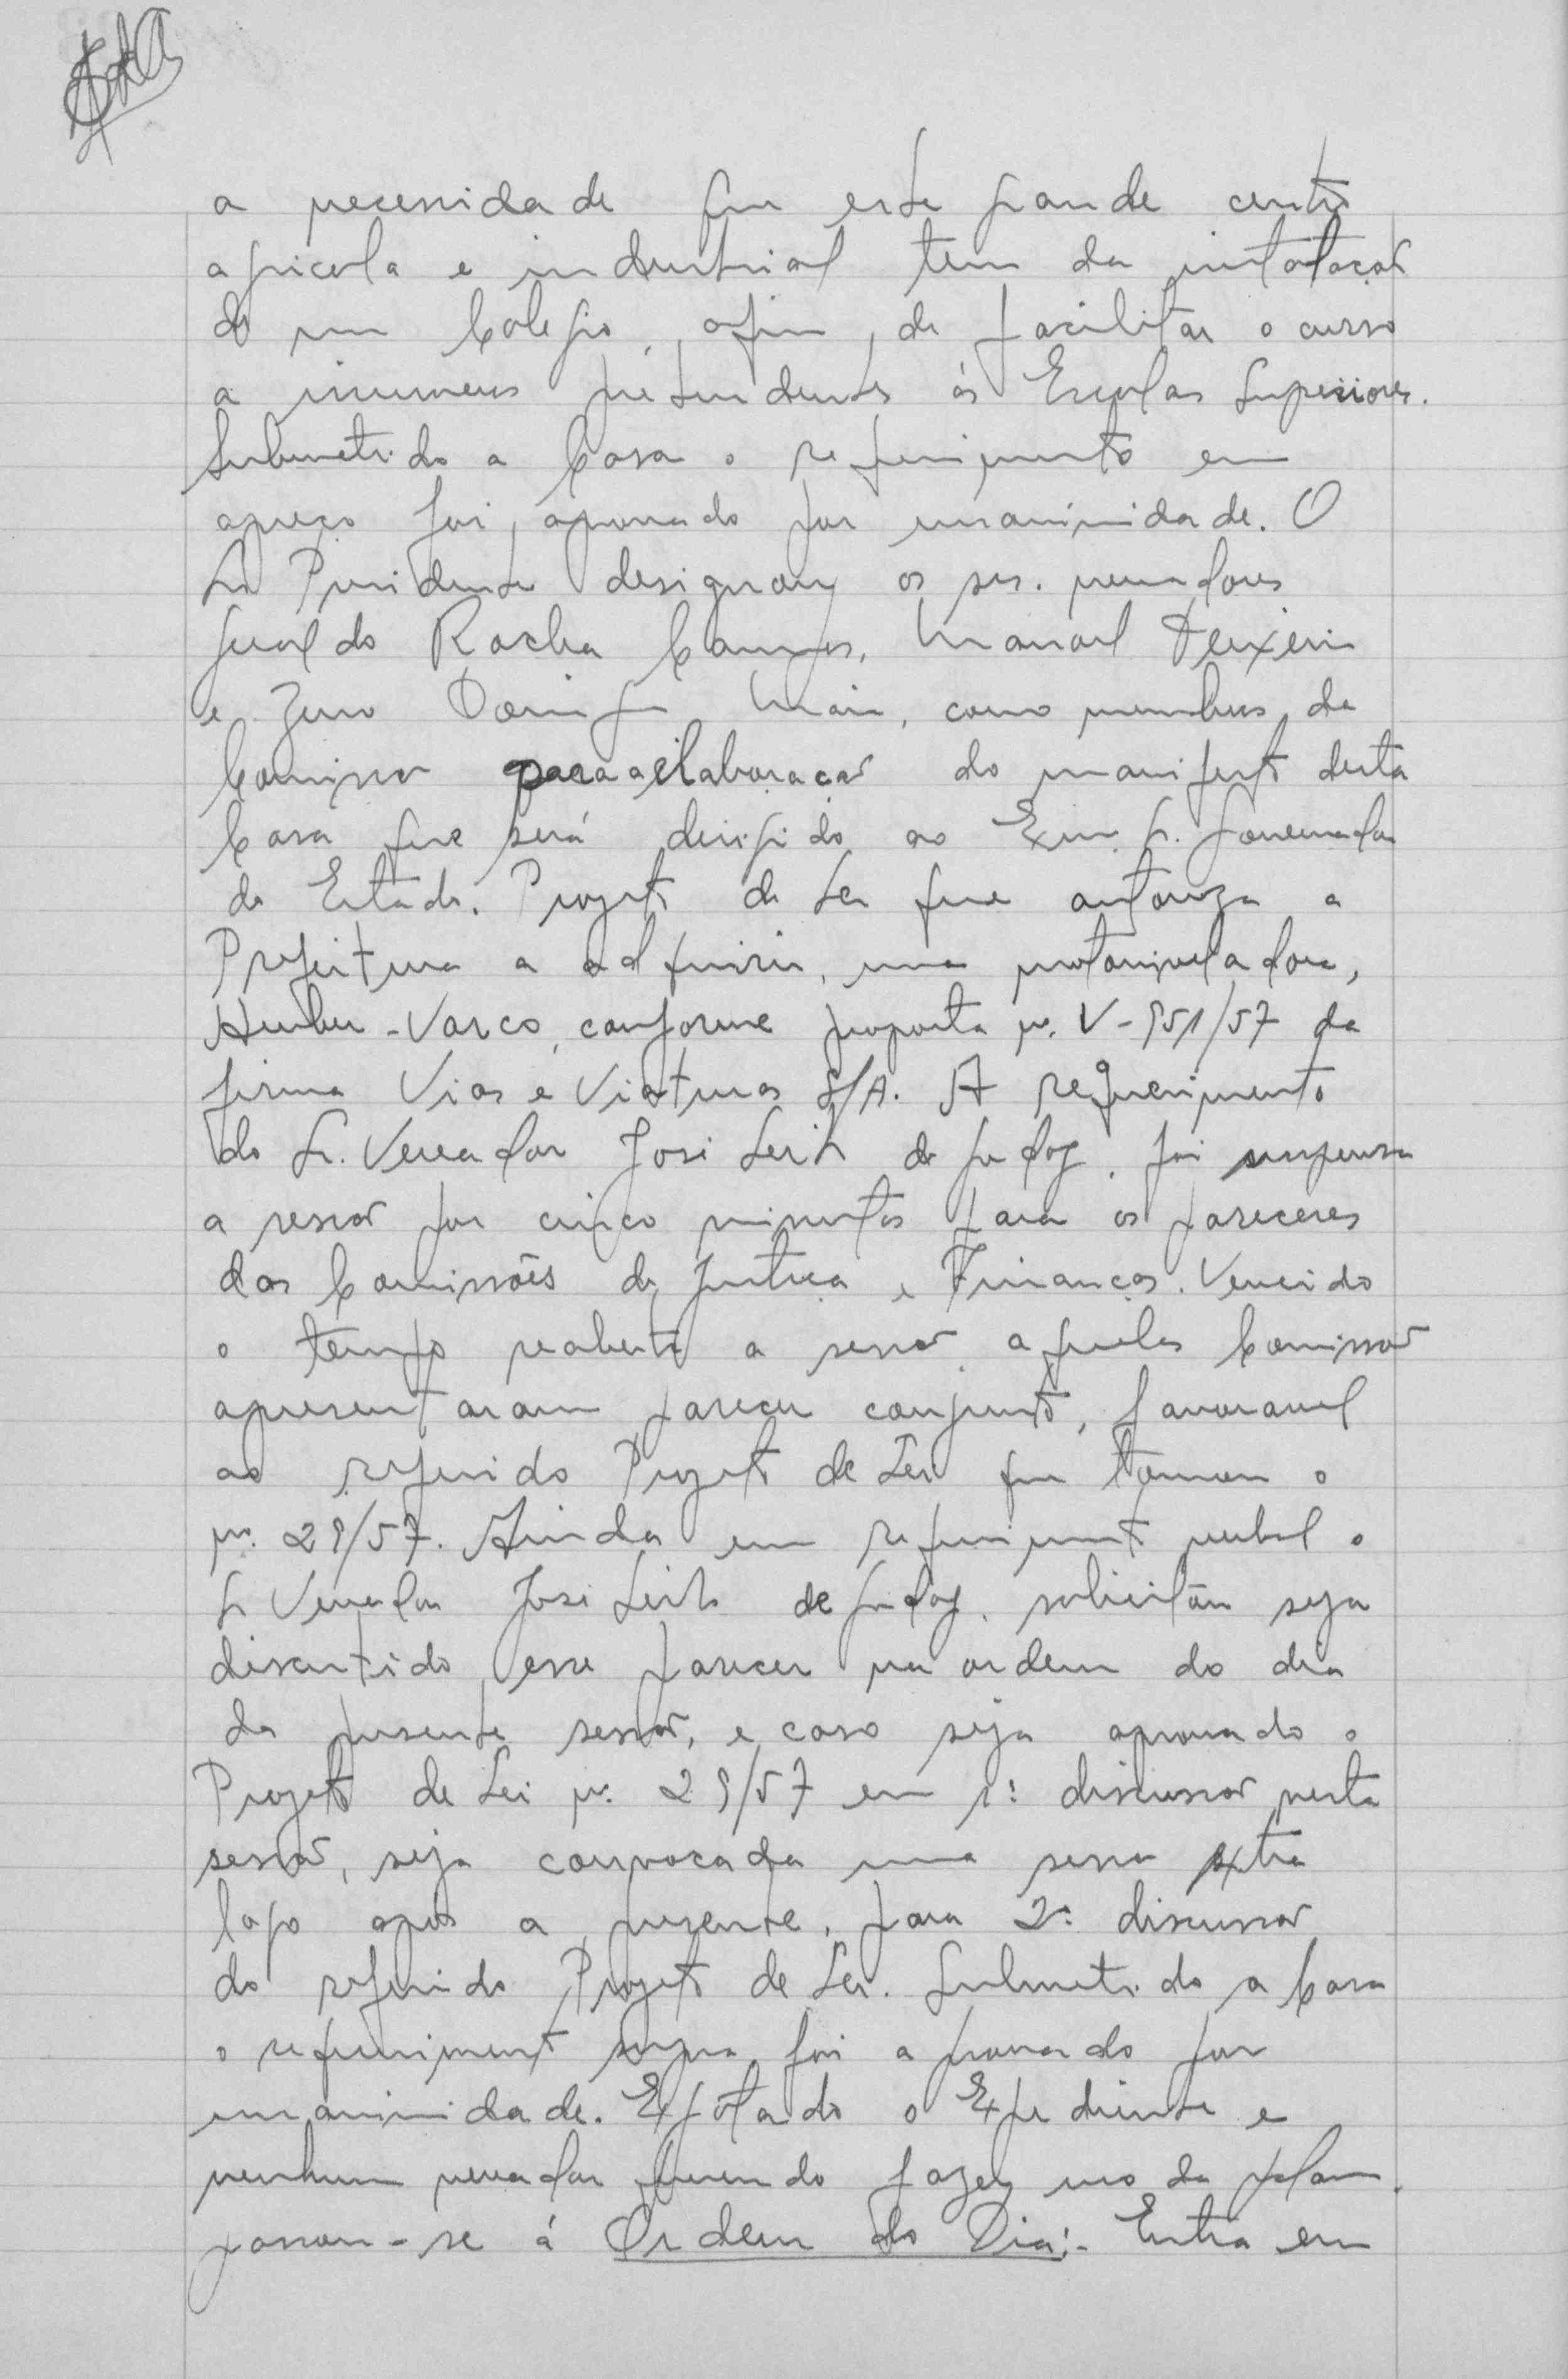 a necessidade que este grande centro
agricola e industrial tem da instalaçaõ
de um Colegio, afim, de facilitar o curso
a inumeros pretendentes ás Escolas Superiores.
Submetido a Casa o requerimento em
apreço foi, aprovado por unanimidade. O
Sr Presidente designou os srs. vereadores
Geraldo Rocha Campos, Manoel Teixeira
e Zeno Maia, como membros da
Comissaõ para a elaboracaõ do manifesto desta
Casa que será dirigido ao Exm. Sr. Governador
do Estado. Projeto de Lei que autoriza a
Prefeitura a adquirir, uma motoniveladora,
Huber-Varco, conforme proposta nº. V-951/57 da
firma Vias e Viaturas S/A. A requerimento
do Sr. Vereador José Leite de Godoy, foi suspensa
a sessaõ por cinco minutos para os pareceres
das Comissões de Justiça e Finanças. Vencido
o tempo reaberta a sessaõ, aquelas Comissaõ
apresentaram parecer conjunto, favoravel
ao referido Projeto de Lei que tomou o
nº. 29/57. Ainda em requerimento verbal o
Sr Vereador José Leite de Godoy, solicitou seja
discutido esse parecer na ordem do dia
da presente sessaõ, e caso seja aprovado o
Projeto de Lei nº. 29/57 em 1ª discussaõ nesta
sessaõ, seja convocada uma sessaõ extra
logo após a presente, para 2ª discussaõ
do referido Projeto de Lei. Submetido a Casa
o requerimento supra foi aprovado por
unanimidade. Esgotado o Expediente e
nenhum vereador querendo fazer uso da palavra,
passou-se á Ordem do Dia:- Entra em